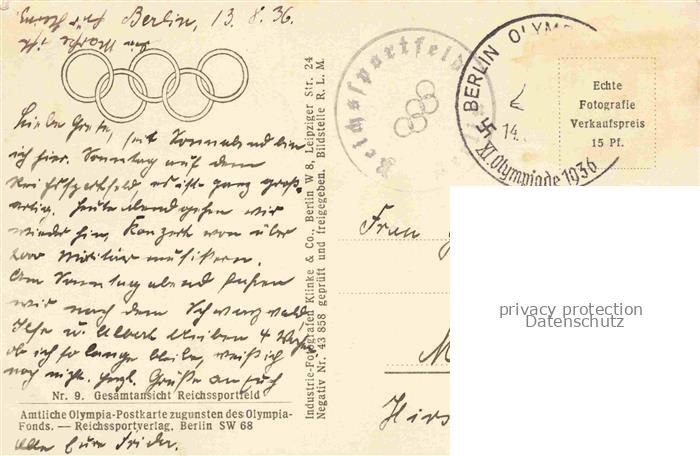 Berlin, 13. 8. 36.
Liebe Grete, seit Sonnabend bin
ich hier. Sonntag auf dem
Reichssportfeld es ist ganz groß-
artig. Heute abend gehen wir
wieder hin, Konzert von über
2000 Militärmusikern.
Am Sonntag abend fahren
wir nach dem Schwarzwald
Ilse u. Albert bleiben 4 Wochen
ob ich so lange bleibe, weiß ich
noch nicht. Herzl. Grüße an Euch
alle Eure Frieda.
Nr. 9. Gesamtansicht Reichssportfeld
Amtliche Olympia-Postkarte zugunsten des Olympia-
Fonds. — Reichssportverlag, Berlin SW 68
Industrie-Fotografen Klinke & Co., Berlin W 8, Leipziger Str. 24
Negativ Nr. 43 858 geprüft und freigegeben. Bildstelle R. L. M.
Reichssportfeld
BERLIN OLYM
14.
XI. Olympiade 1936
Echte
Fotografie
Verkaufspreis
15 Pf.
Frau
M
Hirs
privacy protection
Datenschutz